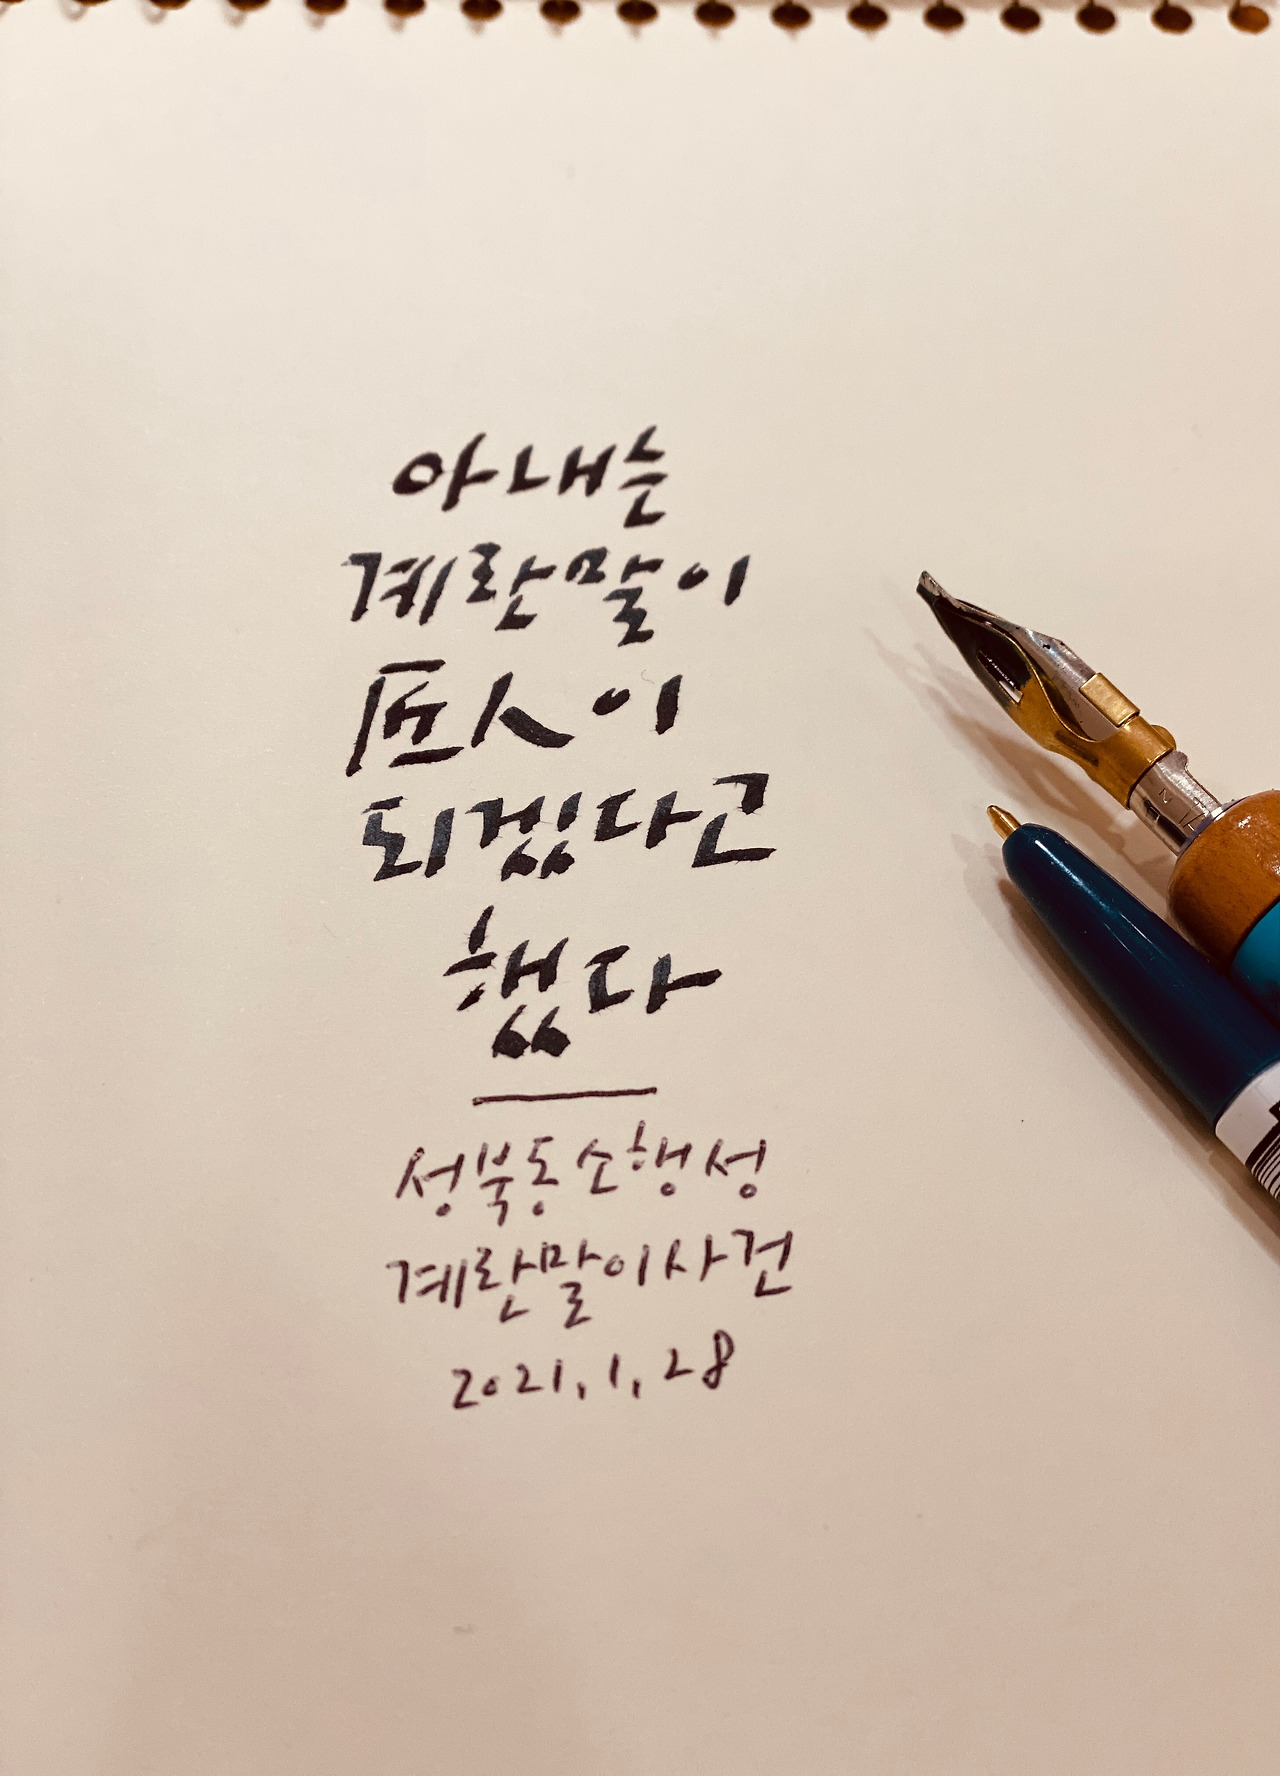 아내는
계란말이
匠人이
되겠다고
했다
성북동소행성
계란말이사건
2021.1.28